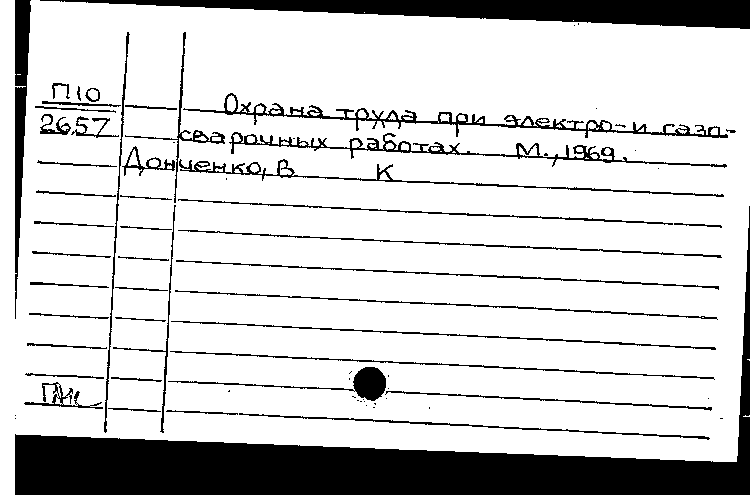 П10
2657
Охрана труда при электро- и газо-
сварочных работах. М., 1969.
Донченко, В К